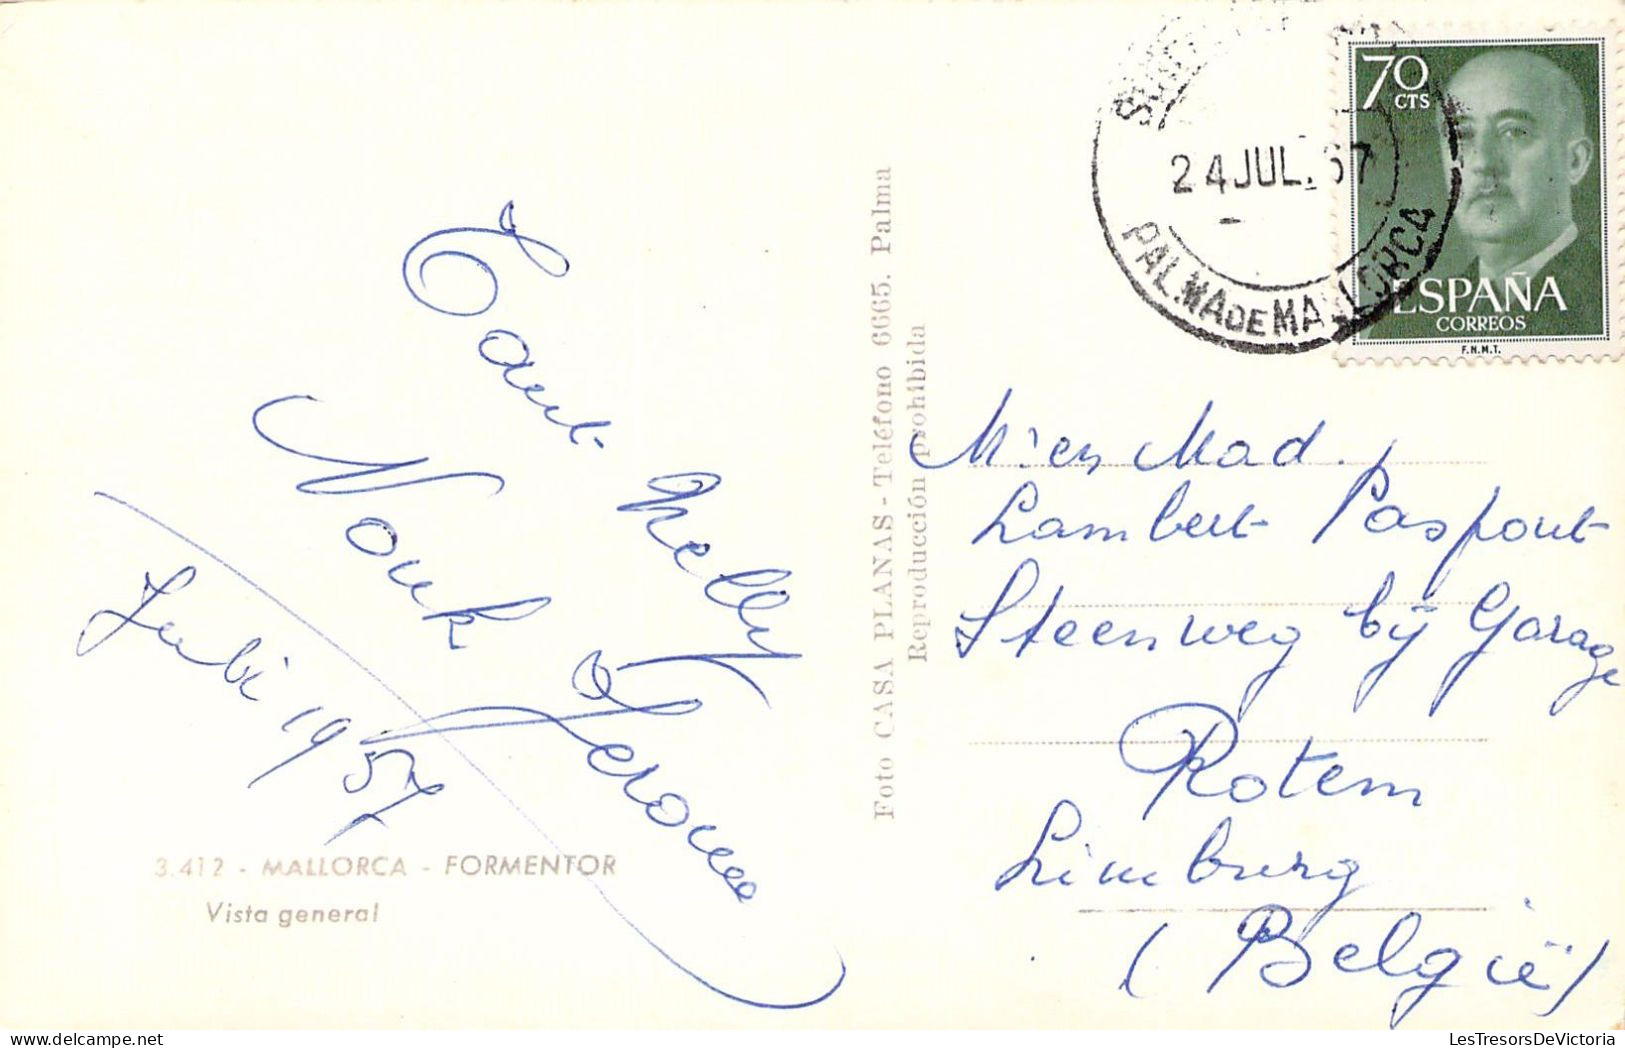 Tant Nelly
Nonk Jerome
Juli 1957
3.412 - MALLORCA - FORMENTOR
Vista general
Foto CASA PLANAS - Teléfono 6665. Palma
Reproducción prohibida
24 JUL. 57
PALMA DE MALLORCA
70
CTS
ESPAÑA
CORREOS
F.N.M.T.
Mad.
Lambert Paspont
Steenweg bij Garage
Rotem
Limburg
(België)
LesTresorsDeVictoria